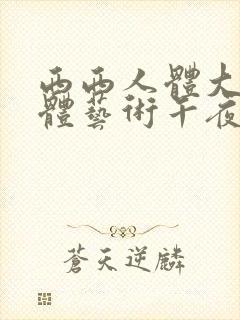 西西人體大
體藝術午夜
蒼天逆麟